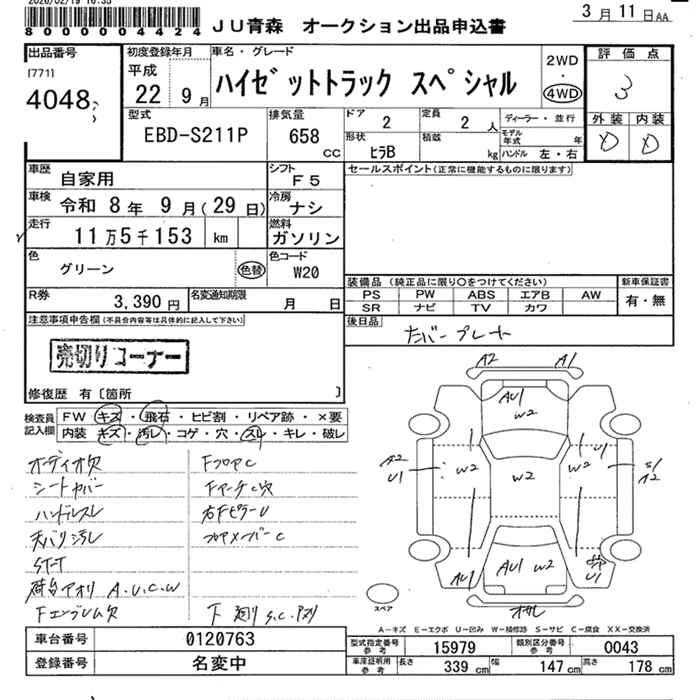 2026/02/19 16:35
8000004424
JU青森 オークション出品申込書
3月11日AA
出品番号
[771]
4048
初度登録年月
平成
22 9月
車名・グレード
ハイゼットトラック スペシャル
2WD
・
4WD
評価点
3
外装 内装
D D
型式
EBD-S211P
排気量
658
cc
ドア
2
定員
2人
形状
ヒラB
積載
kg
ディーラー・並行
モデル年式 年
ハンドル 左・右
車歴
自家用
シフト
F5
車検
令和 8年 9月(29日)
冷房
ナシ
走行
11万5千153 km
燃料
ガソリン
色
グリーン
色替
色コード
W20
R券
3,390円
名変通知期限
月 日
セールスポイント(正常に機能するものに限ります)
装備品 (純正品に限り〇をつけてください)
PS PW ABS エアB AW
SR ナビ TV カワ
新車保証書
有・無
後日品
ナンバープレート
注意事項申告欄(不具合内容等は具体的に記入して下さい)
売切りコーナー
修復歴 有〔箇所 〕
検査員記入欄
FW キズ・飛石・ヒビ割・リペア跡・×要
内装 キズ・汚レ・コゲ・穴・スレ・キレ・破レ
オーディオ欠
シートカバー
ハンドルスレ
天バリ汚レ
ST-T
荷台アオリ A.U.C.W
Fエンブレム欠
FフロアC
右FピラーU
フロアメンバーC
下廻り S.C.
A2 A1
AU1
W2
A2
U1
W2
W2
W2
U1
S1
A2
AU1
AU1 W2
U1
スペア
A-キズ E-エクボ U-凹み W-補修跡 S-サビ C-腐食 XX-交換済
車台番号
0120763
登録番号
名変中
型式指定番号 参考
15979
類別区分番号 参考
0043
車庫証明用 参考
長さ 339cm
幅 147cm
高さ 178cm